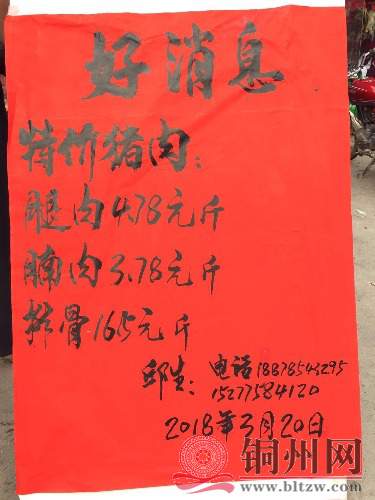 好消息
特价猪肉:
腿肉4.78元斤
腩肉3.78元斤
排骨165元斤
邱生: 电话18878543295
15277584120
2018年3月20日
铜州网
www.bltzw.com